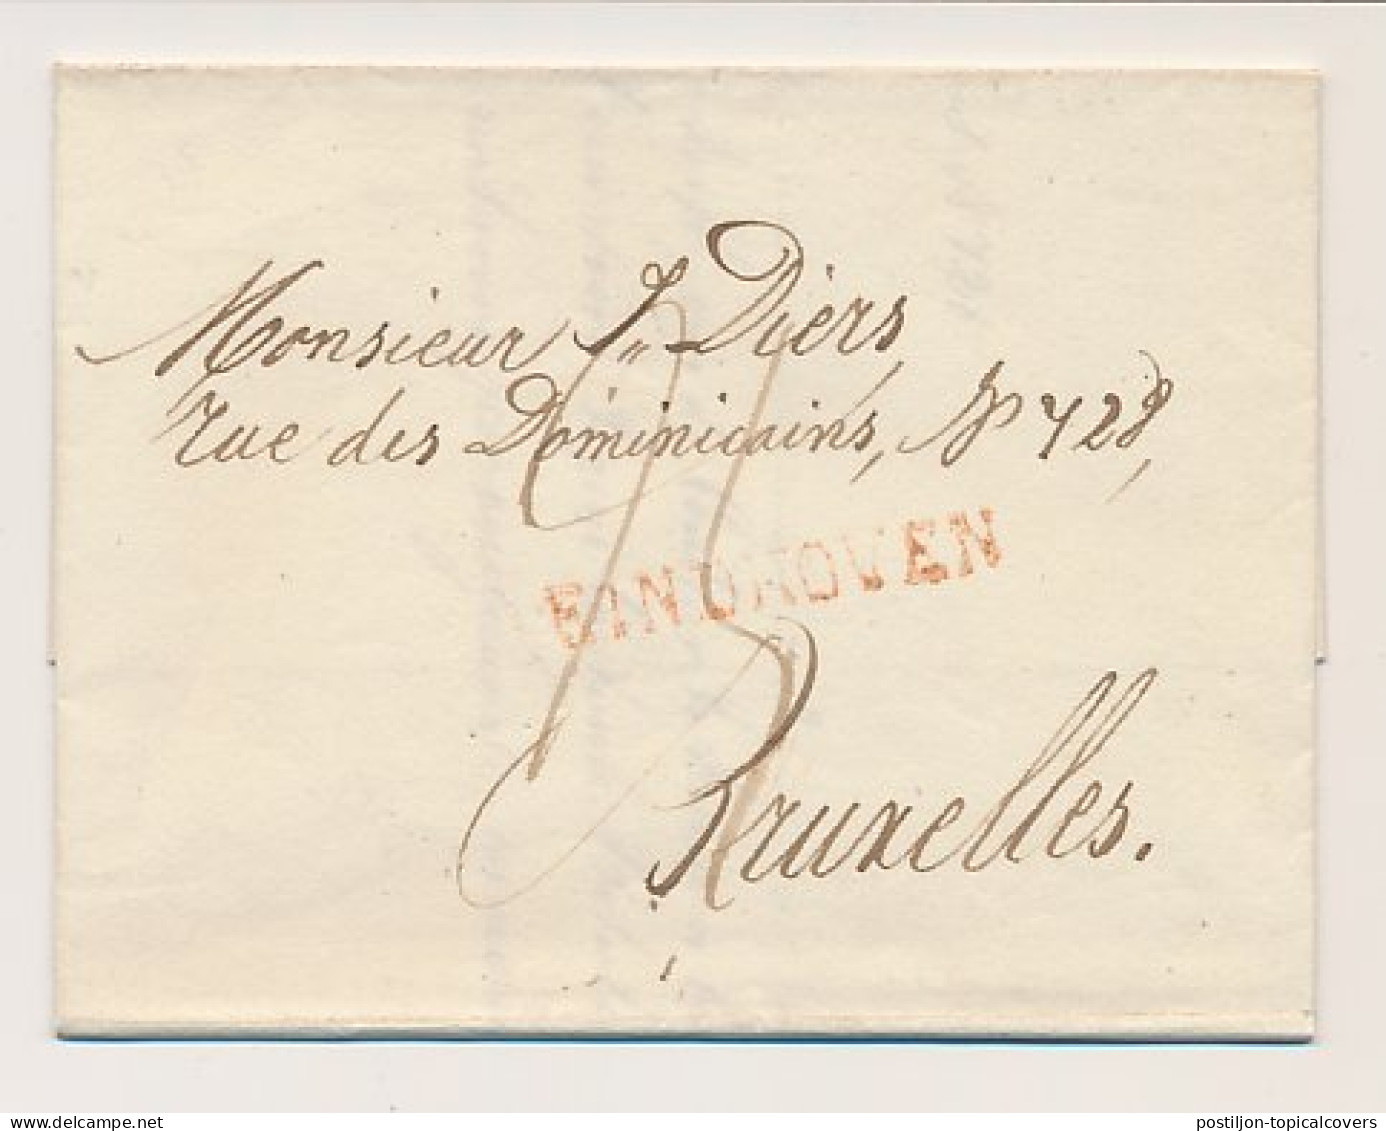 Monsieur J,, Diers,
rue des Dominicains, N° 728,
EINDHOVEN
Bruxelles.
postiljon-topicalcovers